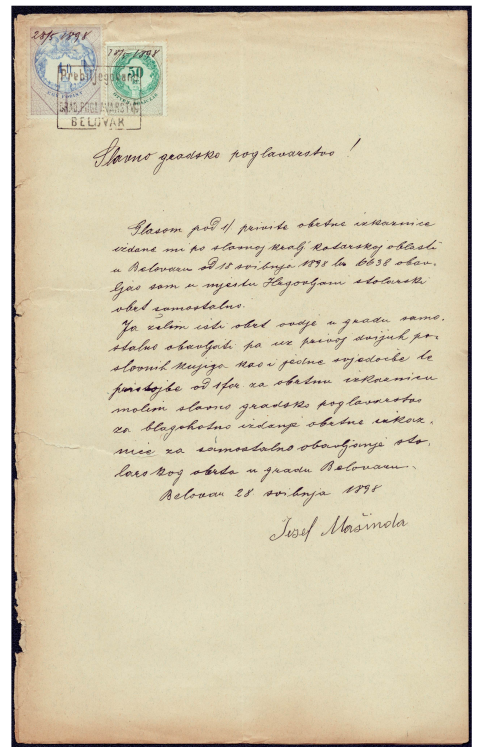 28/5 1898
1898
50
GRAD. POGLAVARSTVO
BELOVAR
Slavno gradsko poglavarstvo!
Glasom pod 1/ privite obrtne izkaznice
izdane mi po slavnoj kralj. kotarskoj oblasti
u Belovaru od 18 svibnja 1898 br 6638 obav-
ljao sam u mjestu stolarski
obrt samostalno.
Ja želim isti obrt ovdje u gradu samo-
stalno obavljati pa uz privoj dvijuh po-
slovnih knjiga kao i jedne svjedočbe te
pristojbe od 1 for za obrtnu izkaznicu
molim slavno gradsko poglavarstvo
za blagohotno izdanje obrtne izkaz-
nice za samostalno obavljanje sto-
larskog obrta u gradu Belovaru.
Belovar 28 svibnja 1898
Josef Mašinda